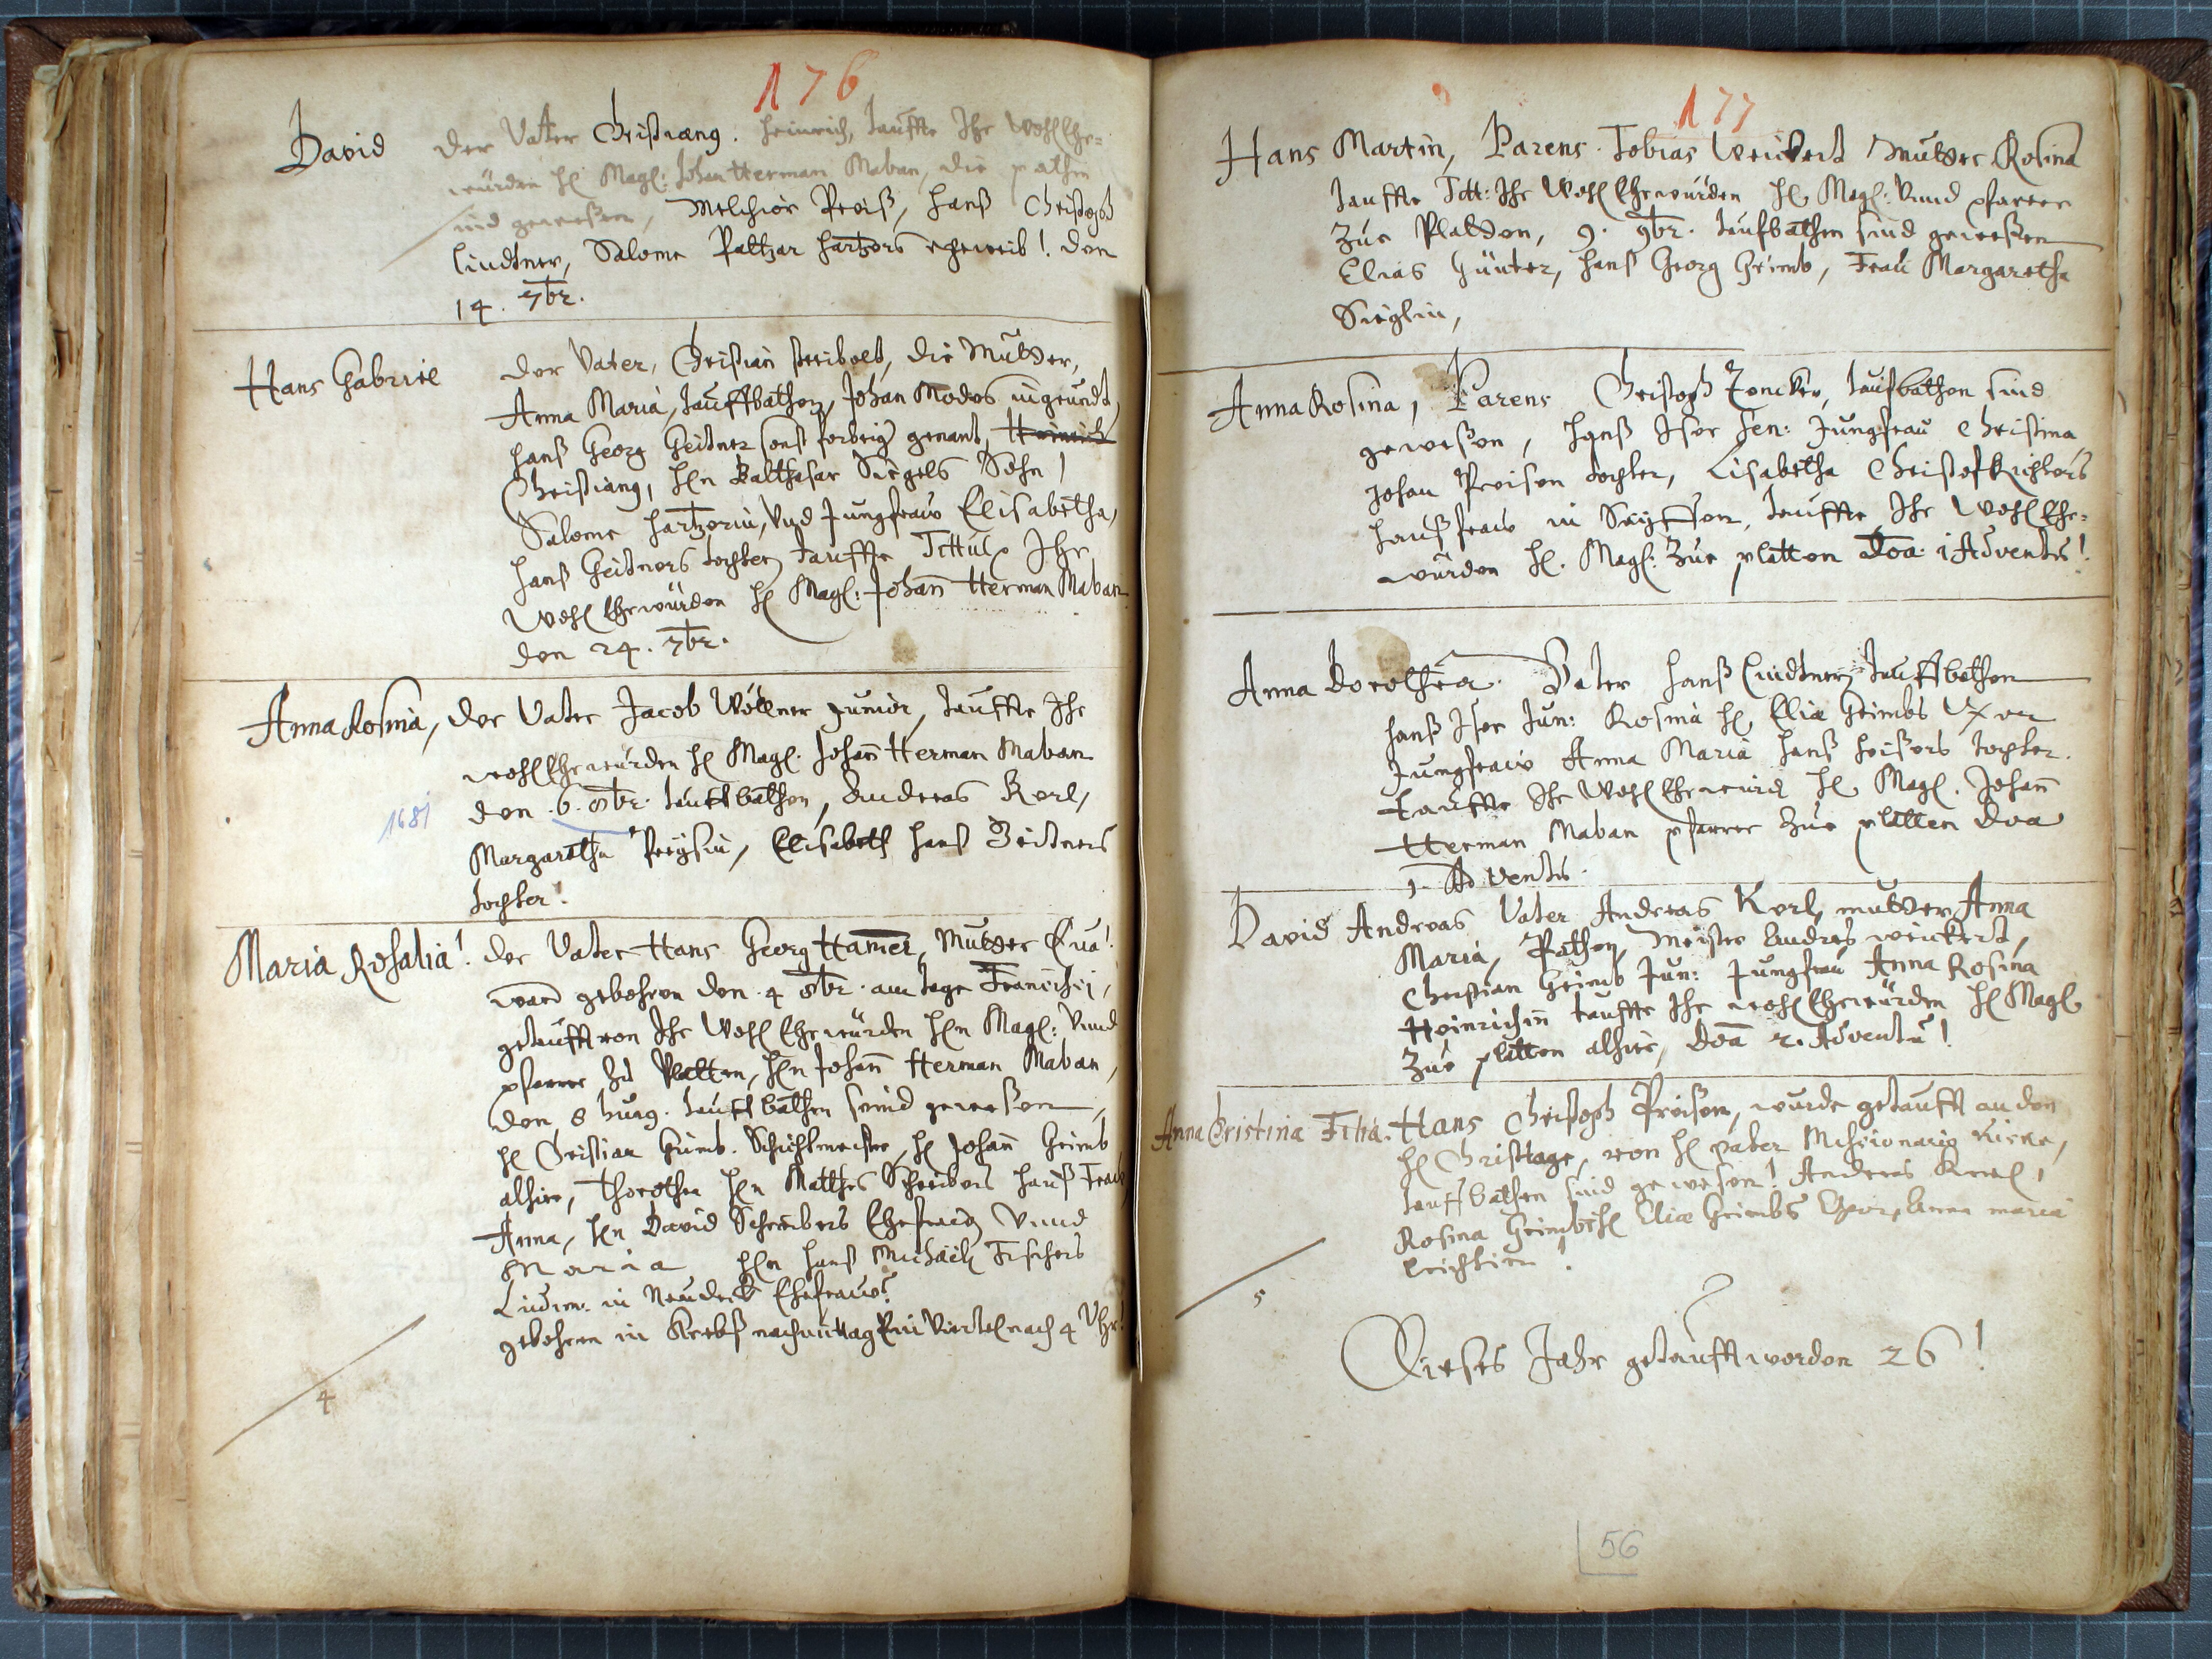 176
David der Vater Christiang. Heinrich, tauffte Ihr WohlEhr=
würden H. Magl: Johan Herman Maban, die pathn
sind geweßen, Melchior Preiß, Hanß Christoph
Lindtner, Salome Paltzar Hartzers eheweib! den
14. 7br.
Hans Gabriel der Vater, Christian, die Mutter,
Anna Maria, tauffbathen, Johan Modes
Hanß Georg Geitner sonst genant, Heinrich
Christiang, Hn Balthasar Siegels Sohn!
Salome Hartzerin, Vnd Jungfraw Elisabetha,
Hanß Geitners tochter, tauffte Tittul: Ihr
WohlEhrwürden H Magl: Johann Herman Maban
den 24. 7br.
Anna Rosina, der Vater Jacob Wöllner Junior, tauffte Ihr
wohlEhrwürden H Magl. Johann Herman Maban
1681 den 6. 8br. tauffbathen, Andreas Korl,
Margaretha Preysin, Elisabeth Hanß Zeitners
tochter!
Maria Rosalia! der Vater Hans Georg Hamer, Mutter Eua!
ward gebohren den 4 8br. am tage Francisci,
getaufft von Ihr WohlEhrwürden Hn Magl: Vnnd
pfarrer zu Platten, Hn Johann Herman Maban,
den 8 hurg. tauffbathen seind geweßen,
H Christian Grimb. Schichtmeister, H Johann Grimb
alhier, Thorothea Hn Matthes Schreibers Hauß Fraw,
Anna, Hn David Schreibers Ehefraw, Vnnd
Maria Hn Hanß Michaeln Fischers
Ludim: in Neudeck Ehefraw!
gebohren in Krebß nachmittag Ein Viertel nach 4 Vhr!
4
177
Hans Martin, Parens. Tobias Weickert Mutter Rosina
tauffte Titt: Ihr WohlEhrwürden H. Magl: Vnnd pfarrer
Zur Platten, 9. 9br. taufbathen sind geweßen
Elias Günter, Hanß Georg Grimb, Frau Margaretha
Sieglin,
Anna Rosina, Parens Christoph Zencker, taufbathen sind
geweßen, Hanß Iser Sen: Jungfrau Christina
Johan Preisen tochter, Lisabetha Christof Richters
haußfraw in Seyffen, tauffte Ihr WohlEhr=
würden H. Magl: Zur platten Doa 1 Adventus!
Anna Dorothea. Vater Hanß Lindtner, tauffbathen
Hanß Iser Jun: Rosina H. Eliæ Grimbs Vxor
Jungfraw Anna Maria Hanß Heißers tochter.
tauffte Ihr WohlEhrwürd H. Magl. Johann
Herman Maban pfarrer Zur platten Doa
1. Adventus.
David Andreas Vater Andreas Korl, mutter Anna
Maria, Pathen, Meister Andreas weickert,
Christian Grimb Jun: Jungfrau Anna Rosina
Heinrichin tauffte Ihr wohlEhrwürden H Magl
Zur platten alhier, Doa 2. Adventu!
Anna Cristina Filia. Hans Christoph Preisen, wurde getaufft an den
H Christtage, von H pater Missionario,
tauffbathen sind gewesen! Andreas Korl,
Rosina Grimbs H. Eliæ Grimbs Vxor, Anna maria
5
Dieses Jahr getaufft worden 26!
56